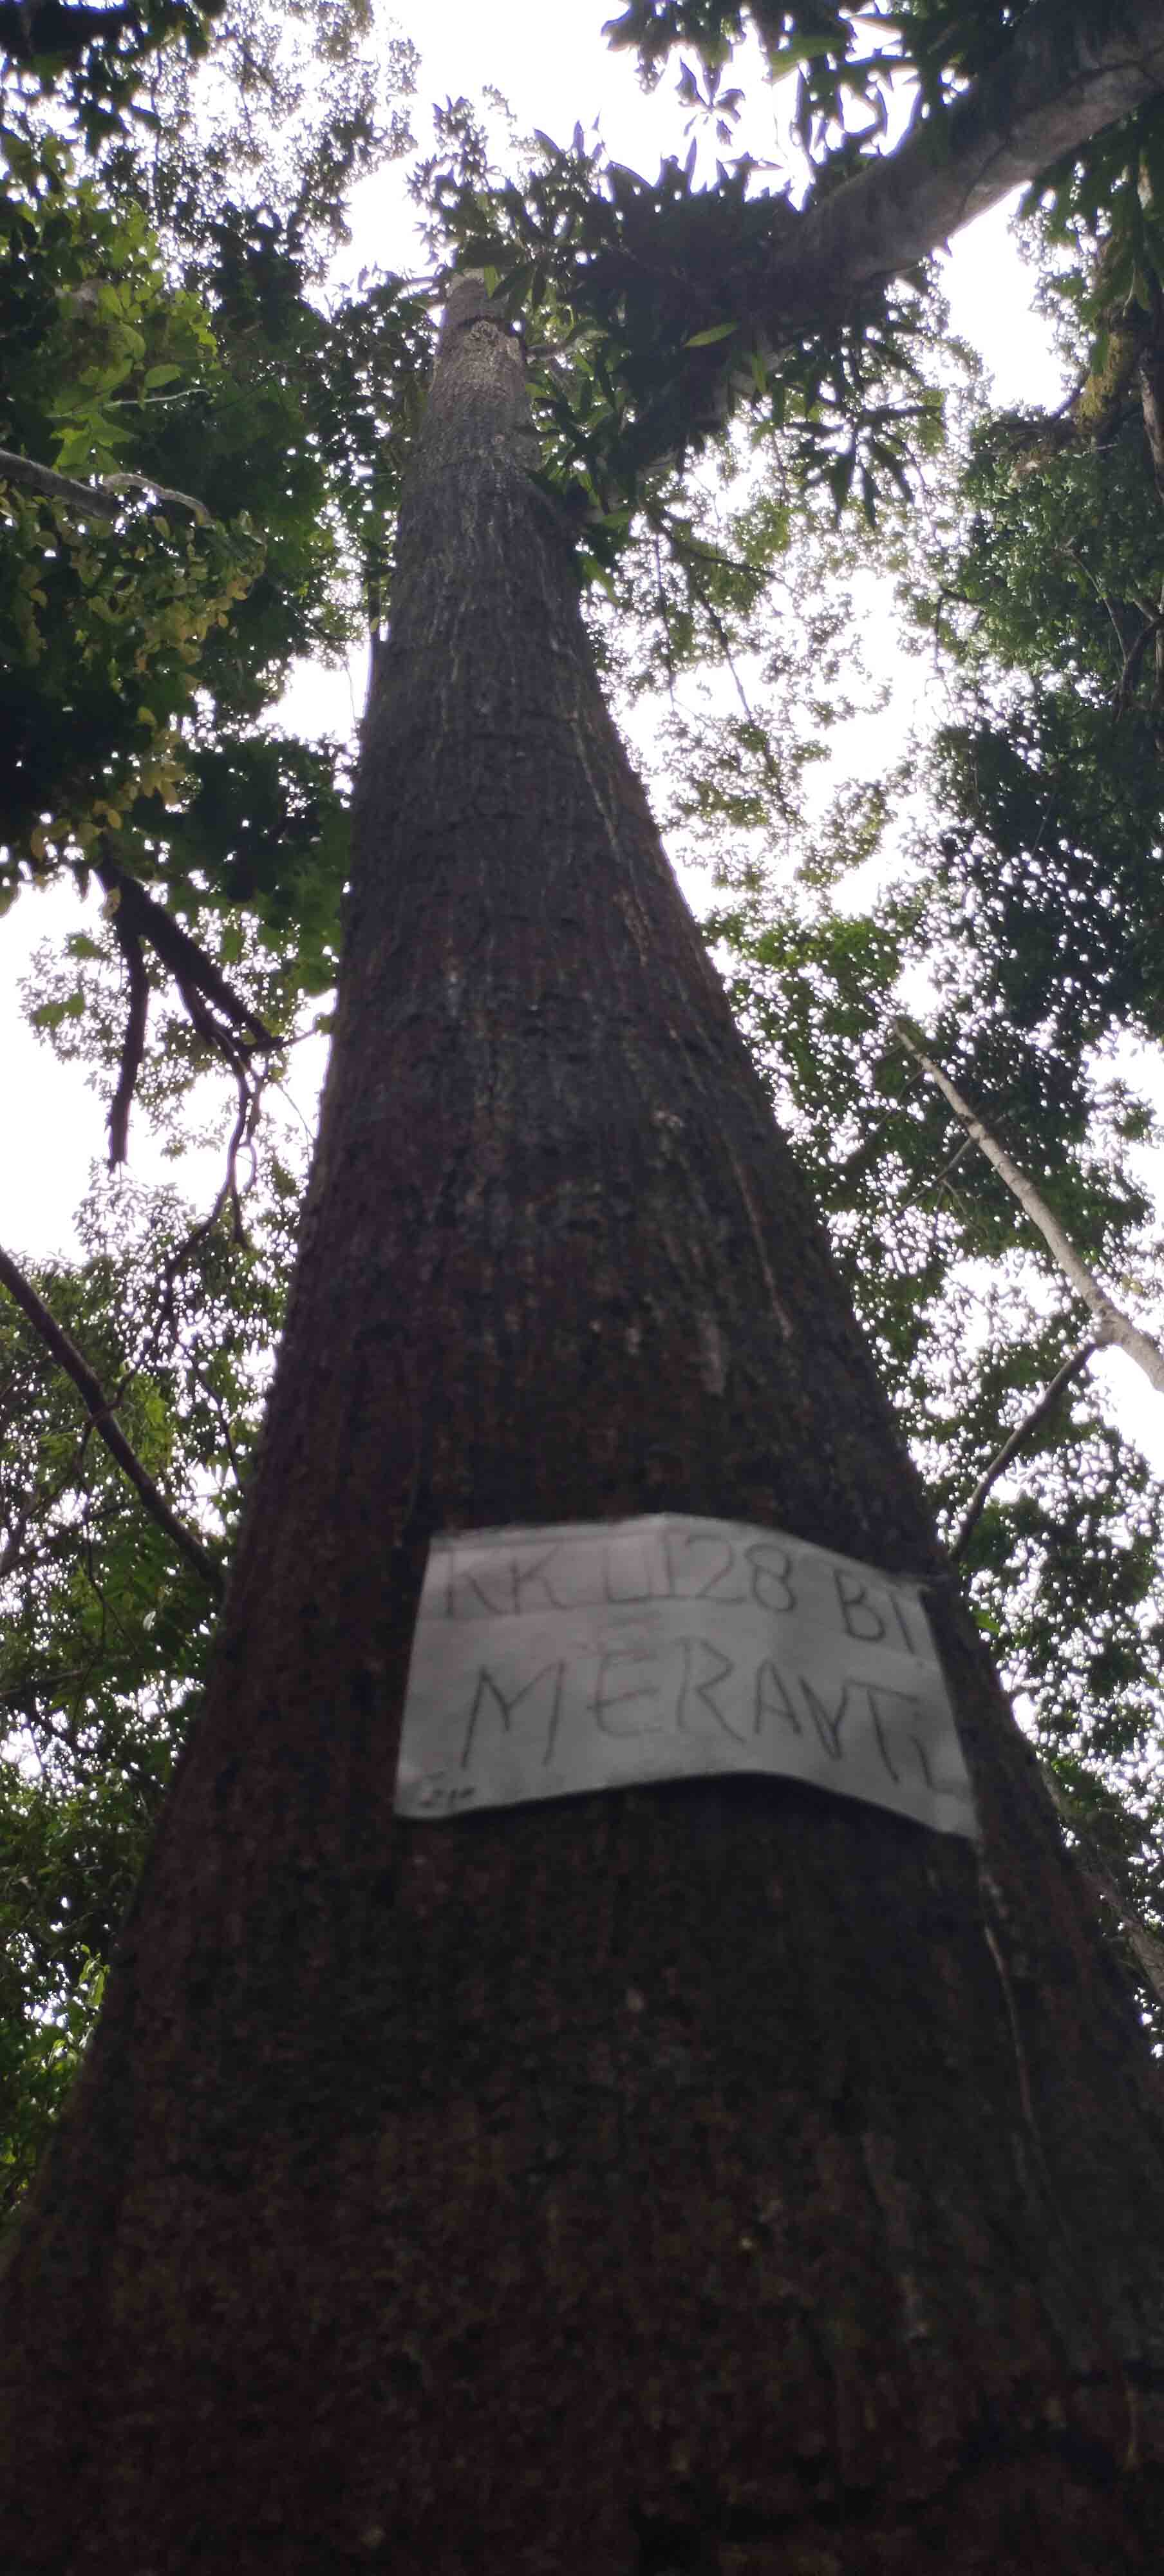 KK U128 BI
MERANTI